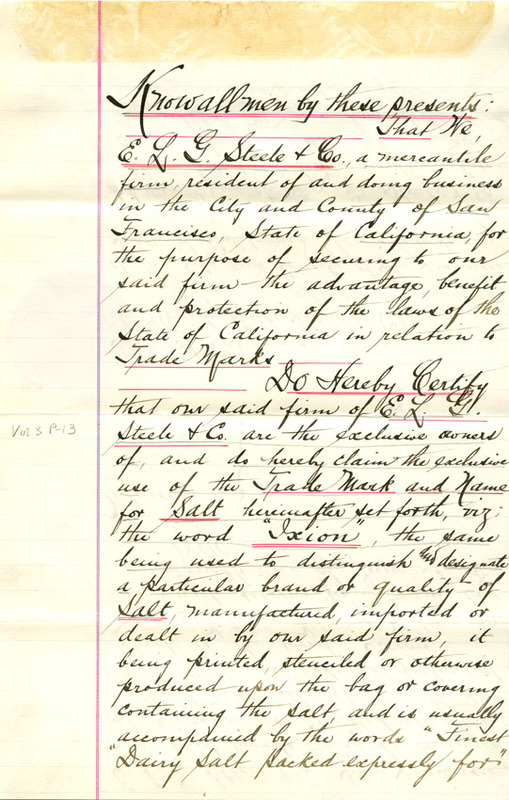 Know all men by these presents:
That We,
E. L. G. Steele & Co., a mercantile
firm, resident of and doing business
in the City and County of San
Francisco, State of California, for
the purpose of securing to our
said firm the advantage, benefit
and protection of the laws of the
State of California in relation to
Trade Marks
Do Hereby Certify
that our said firm of E. L. G.
Steele & Co. are the exclusive owners
of, and do hereby claim the exclusive
use of the Trade Mark and Name
for Salt hereinafter set forth, viz:
the word "Ixion", the same
being used to distinguish and designate
a particular brand or quality of
Salt, manufactured, imported or
dealt in by our said firm, it
being printed, stenciled or otherwise
produced upon the bag or covering
containing the salt, and is usually
accompanied by the words "Finest
"Dairy Salt packed expressly for"
Vol 3 P-13